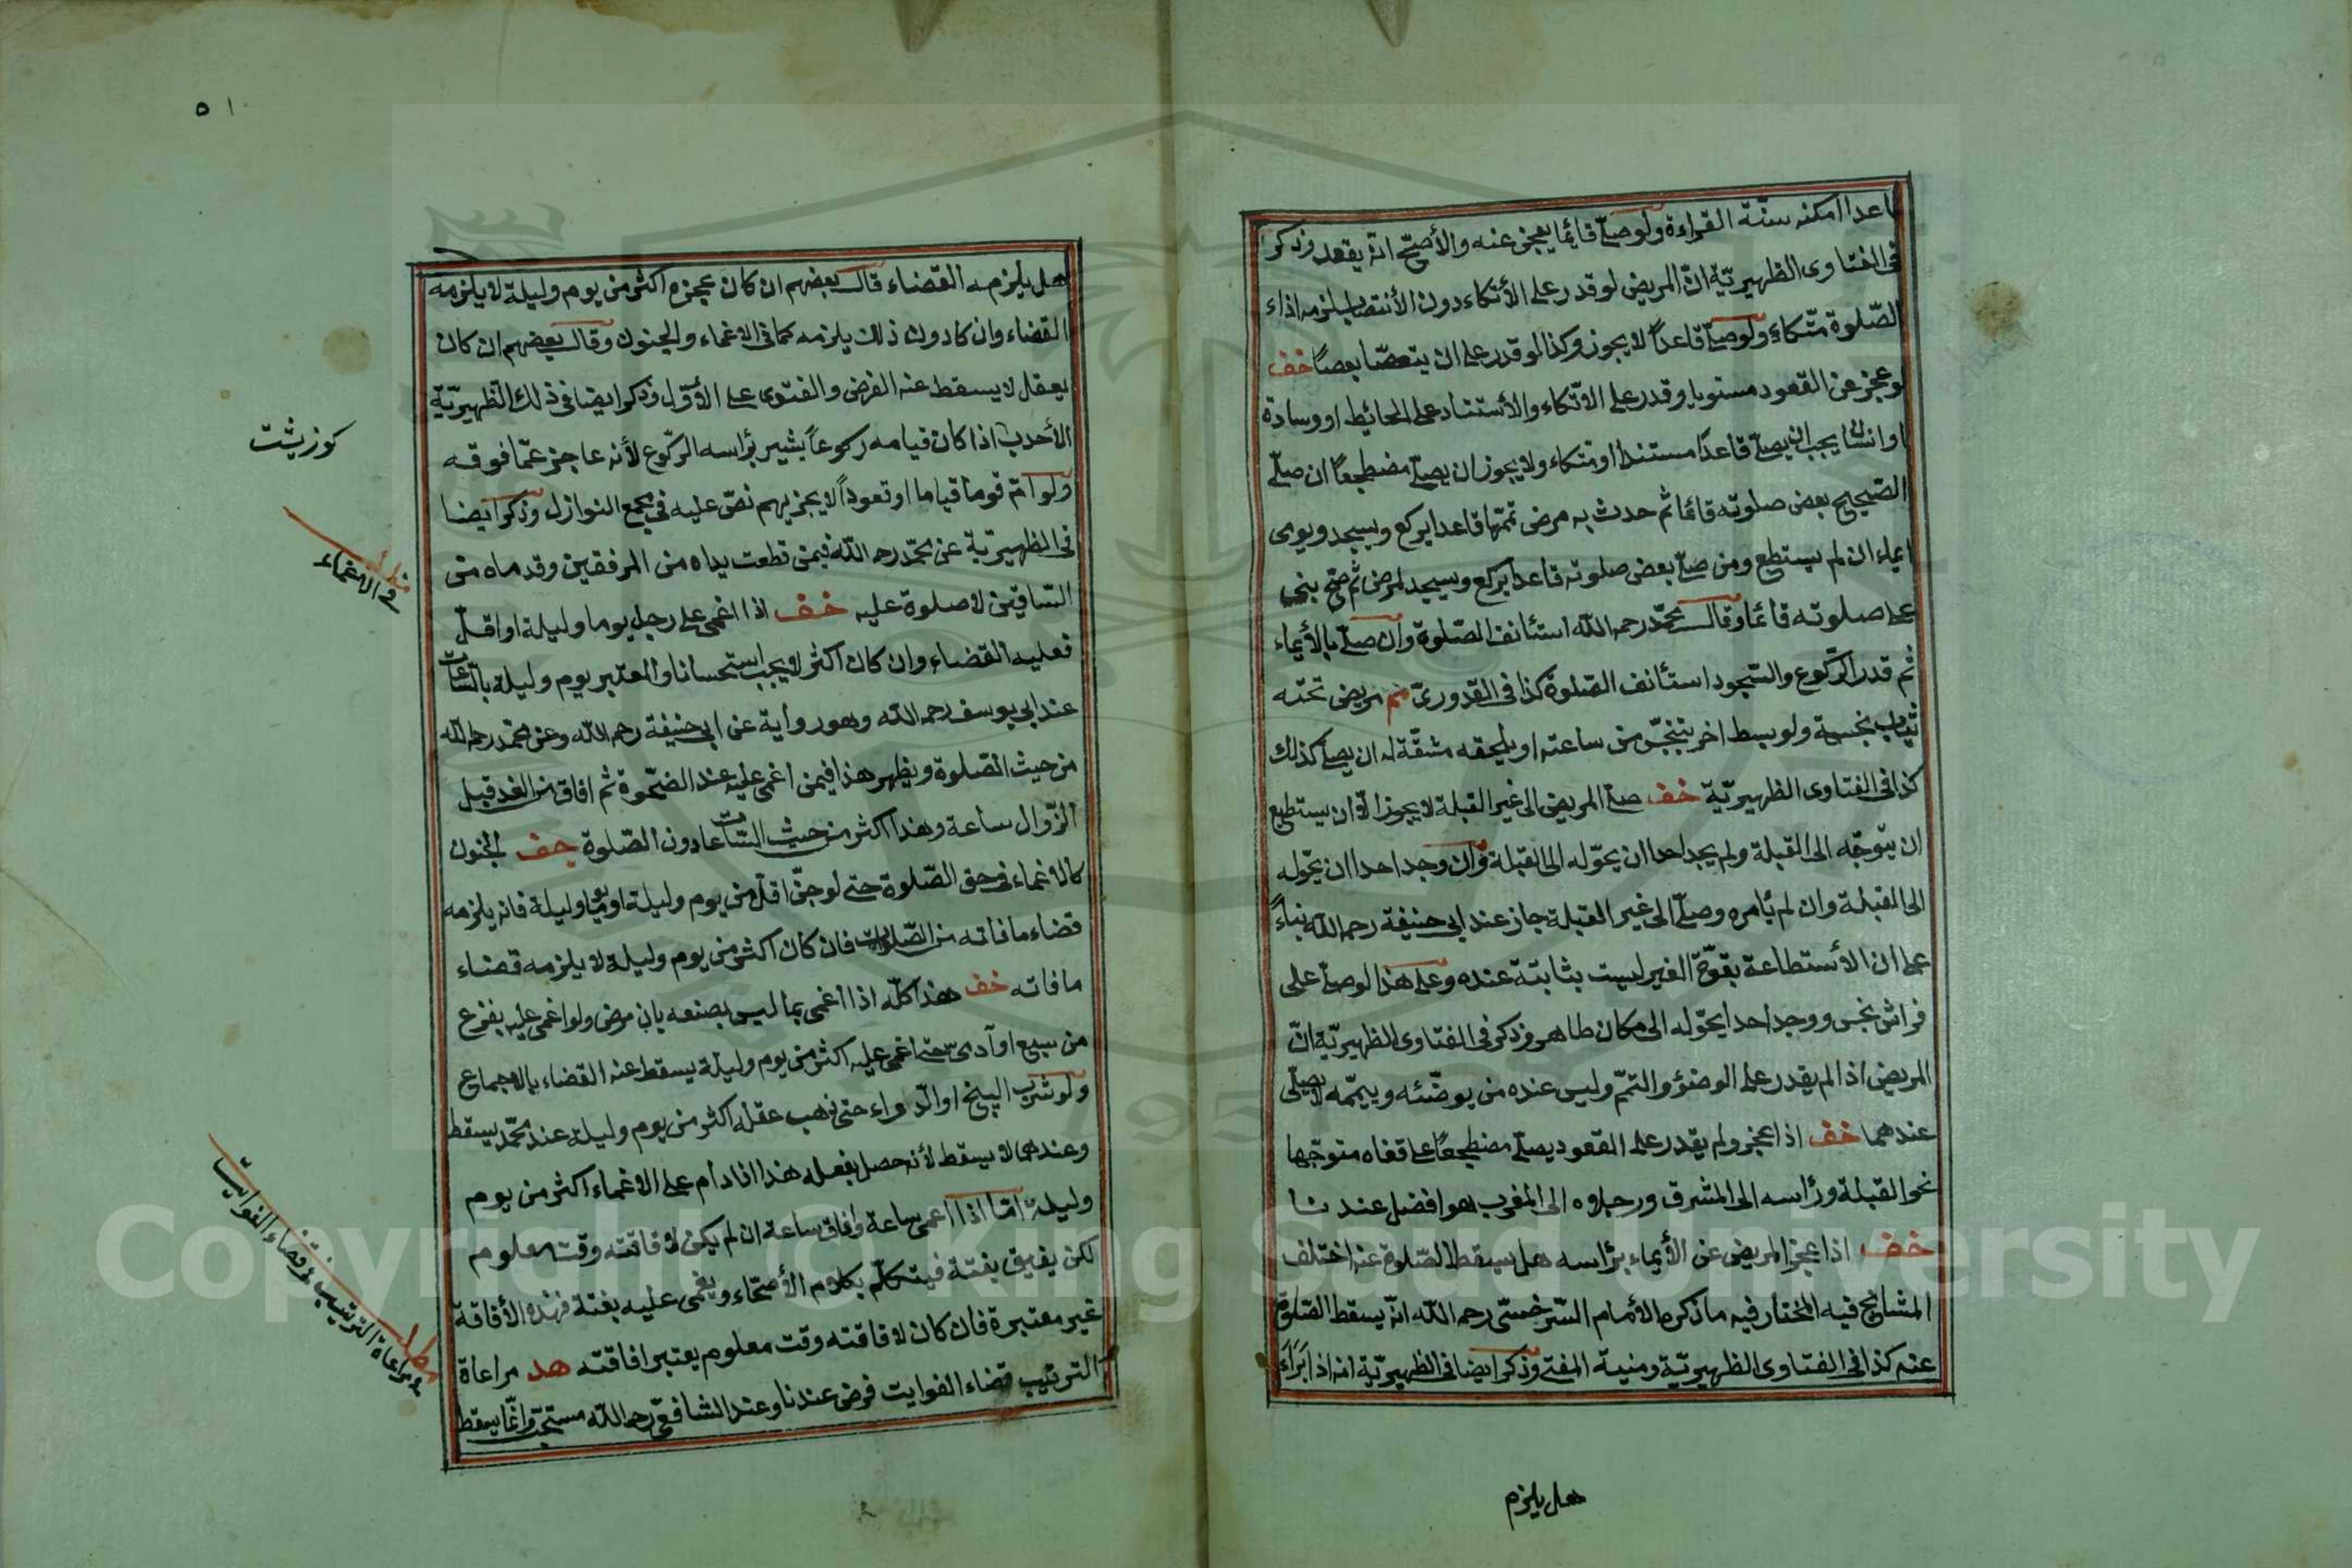 قاعدا امكنه سنّة القراءة ولو صلّى قائما يعجز عنه والأصحّ انّه يقعد وذكر
فى الفتاوى الظهيريّة انّ المريض لو قدر على الأتكاء دون الأنتصاب يلزمه اداء
الصّلوة متّكاء ولو صلّى قاعداً لا يجوز وكذا لو قدر على ان يتعصّا بعصاً خف
لو عجز عن القعود مستويا وقدر على الاتّكاء والأستناد على الحائط او وسادة
او انسان يجب ان يصلّى قاعداً مستندا او متكاء ولا يجوز ان يصلّى مضطجعاً ان صلّى
الصّحيح بعض صلوته قائما ثم حدث به مرض تمّمها قاعدا يركع ويسجد ويومى
ايماء ان لم يستطع ومن صلّى بعض صلوته قاعدا يركع ويسجد لمرض ثم صحّ بنى
على صلوته قائما وقال محمّد رحمه اللّه استئانف الصّلوة وان صلّى بالأيماء
ثم قدر الرّكوع والسّجود استأنف الصّلوة كذا فى القدورىّ مريض تحته
ثياب نجسة ولو بسط اخر تنجّس من ساعته او يلحقه مشقّة له ان يصلى كذلك
كذا فى الفتاوى الظهيريّة خف صلى المريض الى غير القبلة لا يجوز الّا ان يستطيع
ان يتوجّه الى القبلة ولم يجد احدا ان يحوّله الى القبلة وان وجد احدا ان يحوّله
الى القبلة وان لم يأمره وصلّى الى غير القبلة جاز عند ابى حنيفة رحمه اللّه بناءً
على ان الأستطاعة بقوّة الغير ليست بثابتة عنده وعلى هذا لو صلّى على
فراش نجس ووجد احدا يحوّله الى مكان طاهر وذكر فى الفتاوى الظهيريّة انّ
المريض اذا لم يقدر على الوضؤ والتمّم وليس عنده من يوضّئه وييمّمه لا يصلّى
عندهما خف اذا عجز ولم يقدر على القعود يصلّى مضطجعاً على قفاه متوجّها
نحو القبلة ورأسه الى المشرق ورجلاه الى المغرب هو افضل عندنا
خف اذا عجز المريض عن الأيماء برأسه هل يسقط الصّلوة عنه اختلف
المشايخ فيه المختار فيه ما ذكره الأمام السّرخسّى رحمه اللّه انّه يسقط الصّلوة
عنه كذا فى الفتاوى الظهيريّة ومنية المفتى وذكر ايضا فى الظهيريّة انه اذا برأ
هل يلزم
٥١
هل يلزمه القضاء قال بعضهم ان كان عجزه اكثر من يوم وليلة لا يلزمه
القضاء وان كا دون ذلك يلزمه كما فى الاغماء والجنون وقال بعضهم ان كان
يعقل لا يسقط عنه الفرض والفتوى على الأوّل وذكر ايضا فى ذلك الظهيريّة
الأحدب اذا كان قيامه ركوعاً يشير برأسه الرّكوع لأنه عاجز عمّا فوقه
ولو امّ قوما قياما او قعوداً لا يجزيهم نصّ عليه فى مجمع النوازل وذكر ايضا
فى الظهيريّة عن محمّد رحمه اللّه فيمن قطعت يداه من المرفقين وقدماه من
السّاقين لا صلوة عليه خف اذا اغمى على رجل يوما وليلة او اقلّ
فعليه القضاء وان كان اكثر لا يجب استحسانا والمعتبر يوم وليلة بالسّاعات
عند ابى يوسف رحمه اللّه وهو رواية عن ابى حنيفة رحمه اللّه وعن محمّد رحمه اللّه
من حيث الصّلوة ويظهر هذا فيمن اغمى عليه عند الضّحوة ثم افاق من الغد قبل
الزّوال ساعة وهذا اكثر من حيث السّاعات دون الصّلوة خف الجنون
كالاغماء فى حق الصّلوة حتى لو جنّ اقلّ من يوم وليلة او يوما وليلة فانه يلزمه
قضاء ما فاته من الصّلوات فان كان اكثر من يوم وليلة لا يلزمه قضاء
ما فاته خف هذا كلّه اذا اغمى بما ليس بصنعه بان مرض ولو اغمى عليه بفزع
من سبع او آدمىّ حتى اغمى عليه اكثر من يوم وليلة يسقط عنه القضاء بالاجماع
ولو شرب البنج او الدّواء حتى ذهب عقله اكثر من يوم وليلة عند محمّد يسقط
وعندهما لا يسقط لأنه حصل بفعله هذا اذا دام على الاغماء اكثر من يوم
وليلة امّا اذا اغمى ساعة وافاق ساعة ان لم يكن لافاقته وقت معلوم
لكن يفيق بغتة فيتكلّم بكلام الأصحّاء ويغمى عليه بغتة فهذه الأفاقة
غير معتبرة فان كان لافاقته وقت معلوم يعتبر افاقته هد مراعاة
التّرتيب قضاء الفوايت فرض عندنا وعند الشافعىّ رحمه اللّه مستحبّ وانّما يسقط
كوزيشت
مطلب
فى الاغماء
مطلب
مراعاة الترتيب فى قضاء الفوايت
Copyright © King Saud University
1957